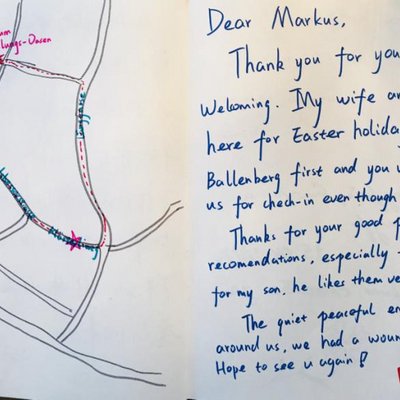 um
lungs-Oasen
Langgasse
Dear Markus,
Thank you for you
Welcoming. My wife an
here for Easter holida
Ballenberg first and you
us for chech-in even though
Thanks for your good
recomendations, especially
for my son, he likes them ve
The quiet peaceful en
around us, we had a woun
Hope to see u again!